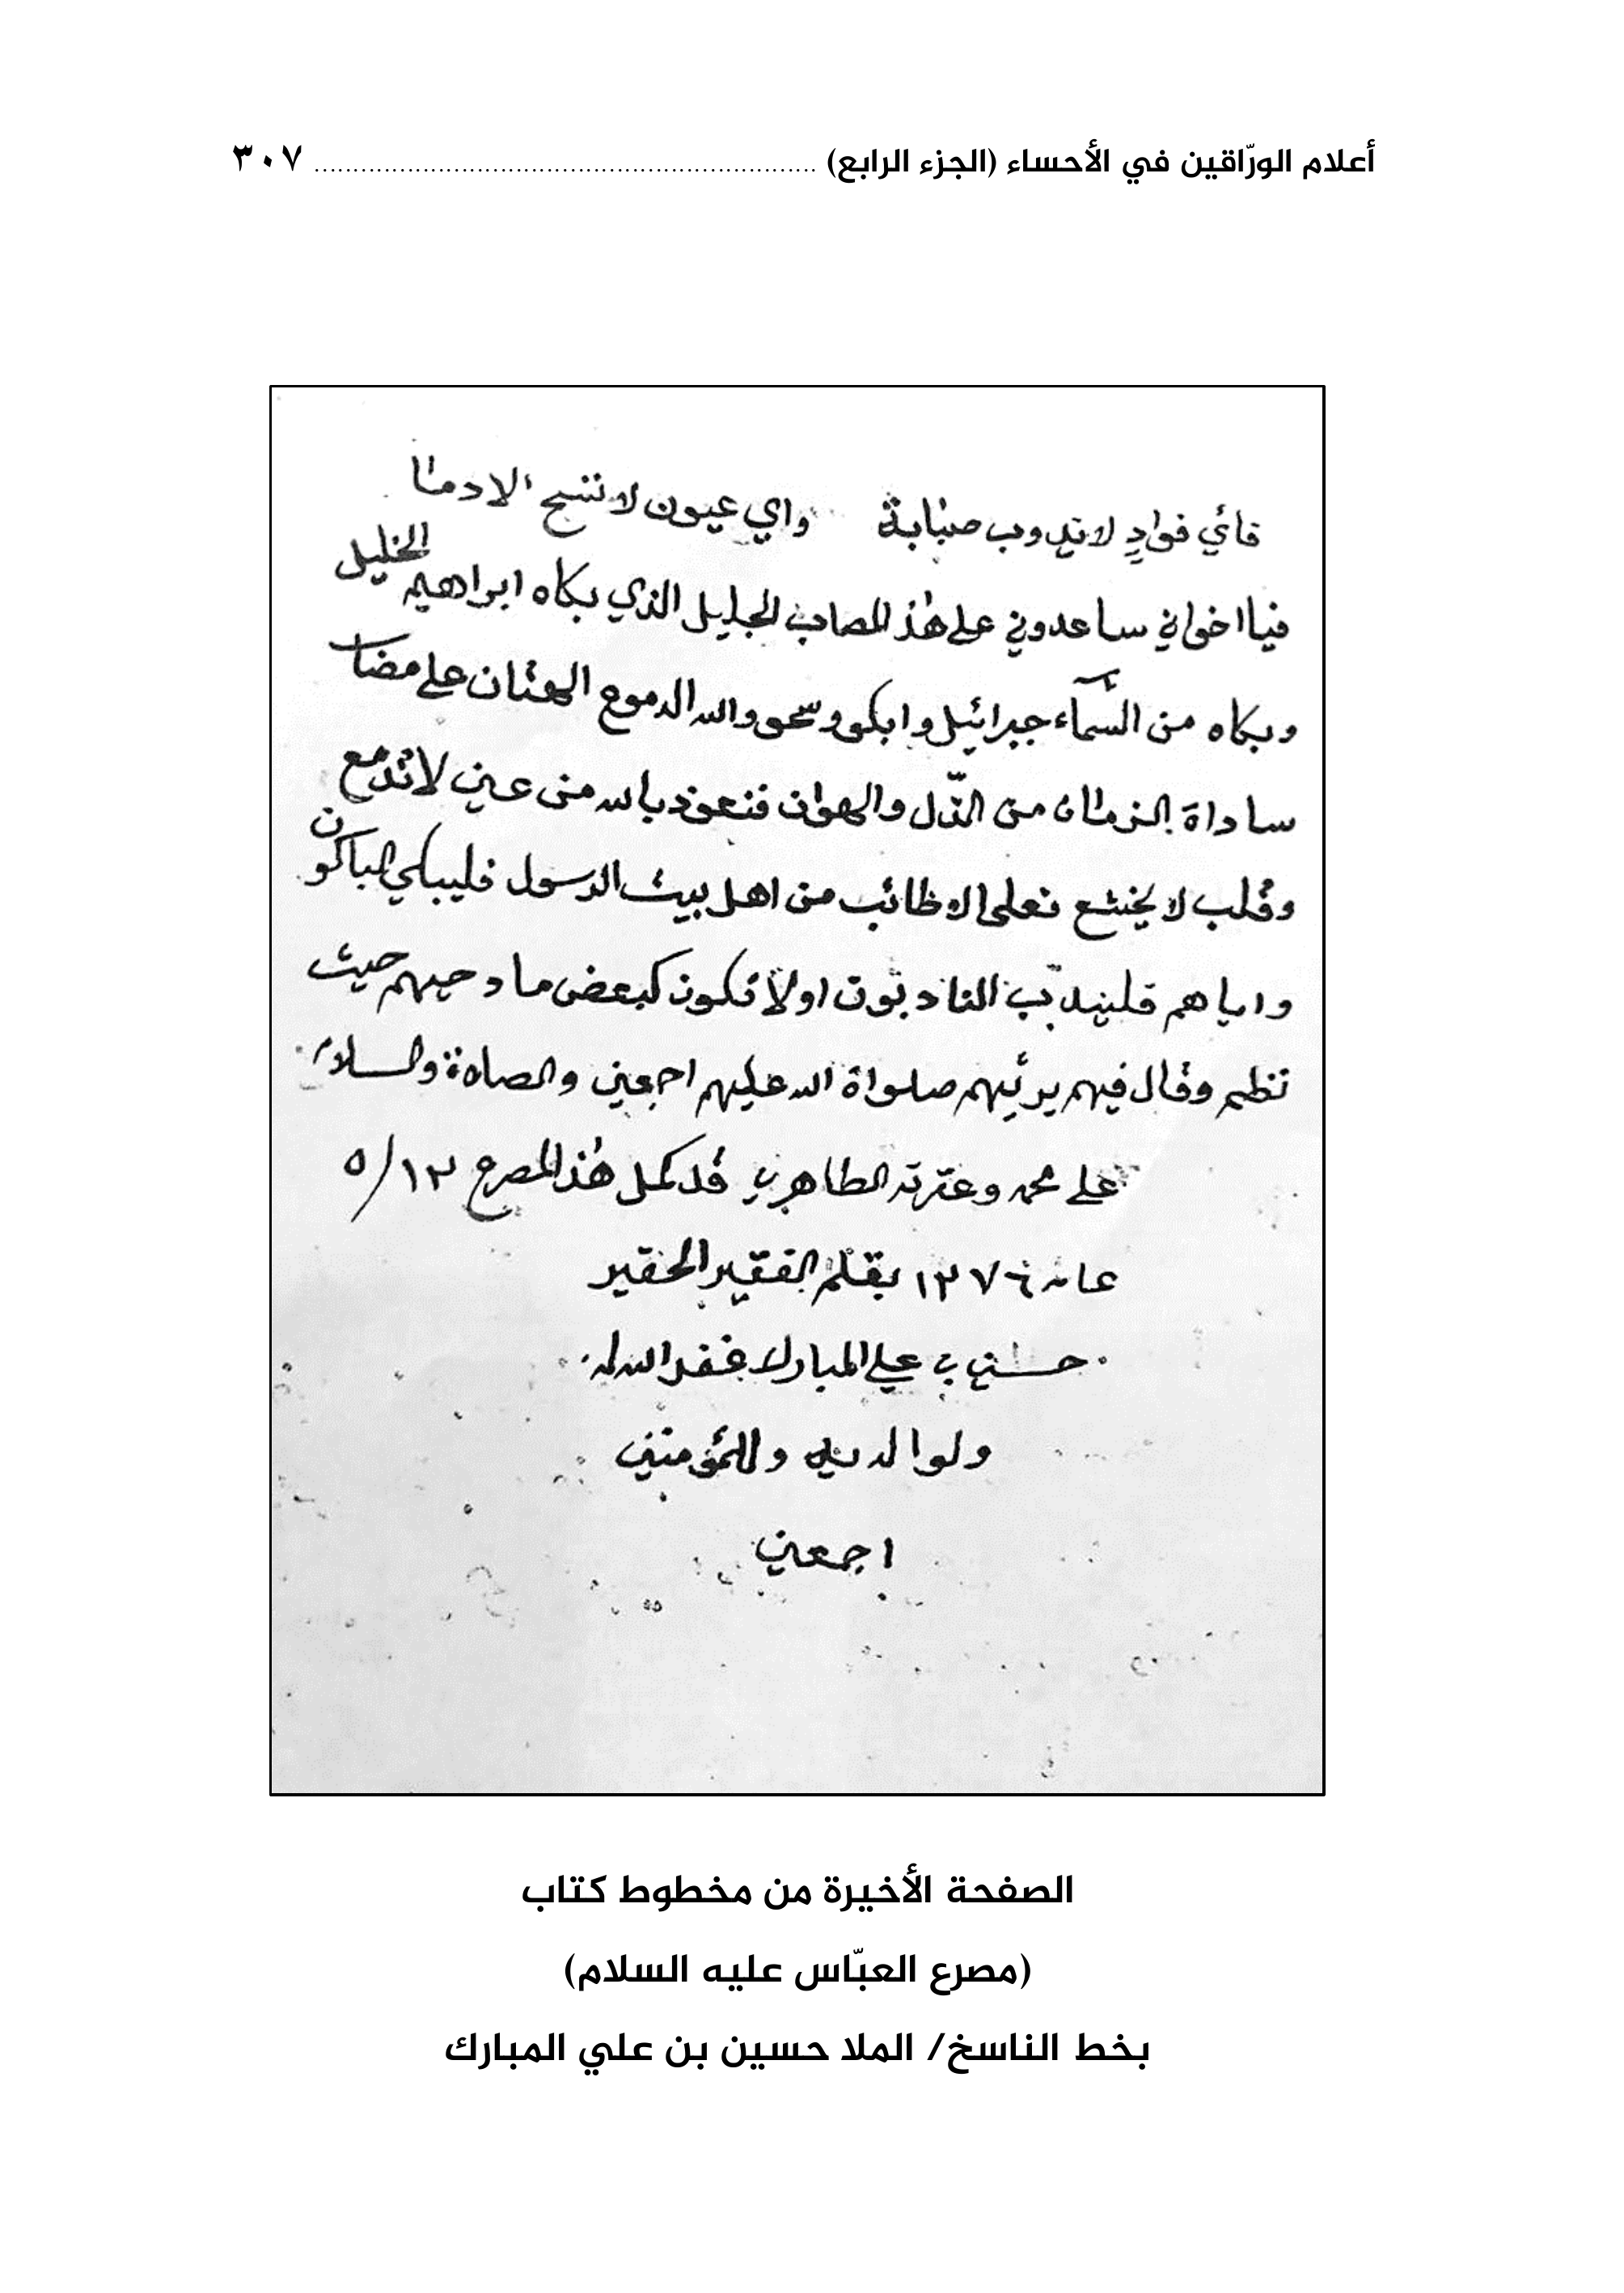 أعلام الورّاقين في الأحساء (الجزء الرابع) ................................................................ ٣٠٧
فائي فوادٍ لا تدوب صبابة واي عيون لا تسح الادما
فيا اخواني ساعدوني على هٰذ المصاب الجليل الذي بكاه ابراهيم الخليل
وبكاه من السّمآء جبرائيل وابكو وسحو والله الدموع الهتان على مضات
ساداة الزمان من الذّل والهوان فنعوذ بالله من عين لا تدمع
وقلب لا يخشع فعلى الاطائب من اهل بيت الرسول فليبكي الباكون
واياهم فليندب النادبون اولا تكون كبعض مادحيهم حيث
نظم وقال فيهم يرثيهم صلواة الله عليهم اجمعين والصلاة والسلام
على محمد وعترته الطاهرين قد كمل هٰذ المصرع ١٢/٥
عام ١٢٧٦ بقلم الفقير الحقير
حسين بن علي المبارك غفر الله له
ولوالديه وللمؤمنين
اجمعين
الصفحة الأخيرة من مخطوط كتاب
(مصرع العبّاس عليه السلام)
بخط الناسخ/ الملا حسين بن علي المبارك